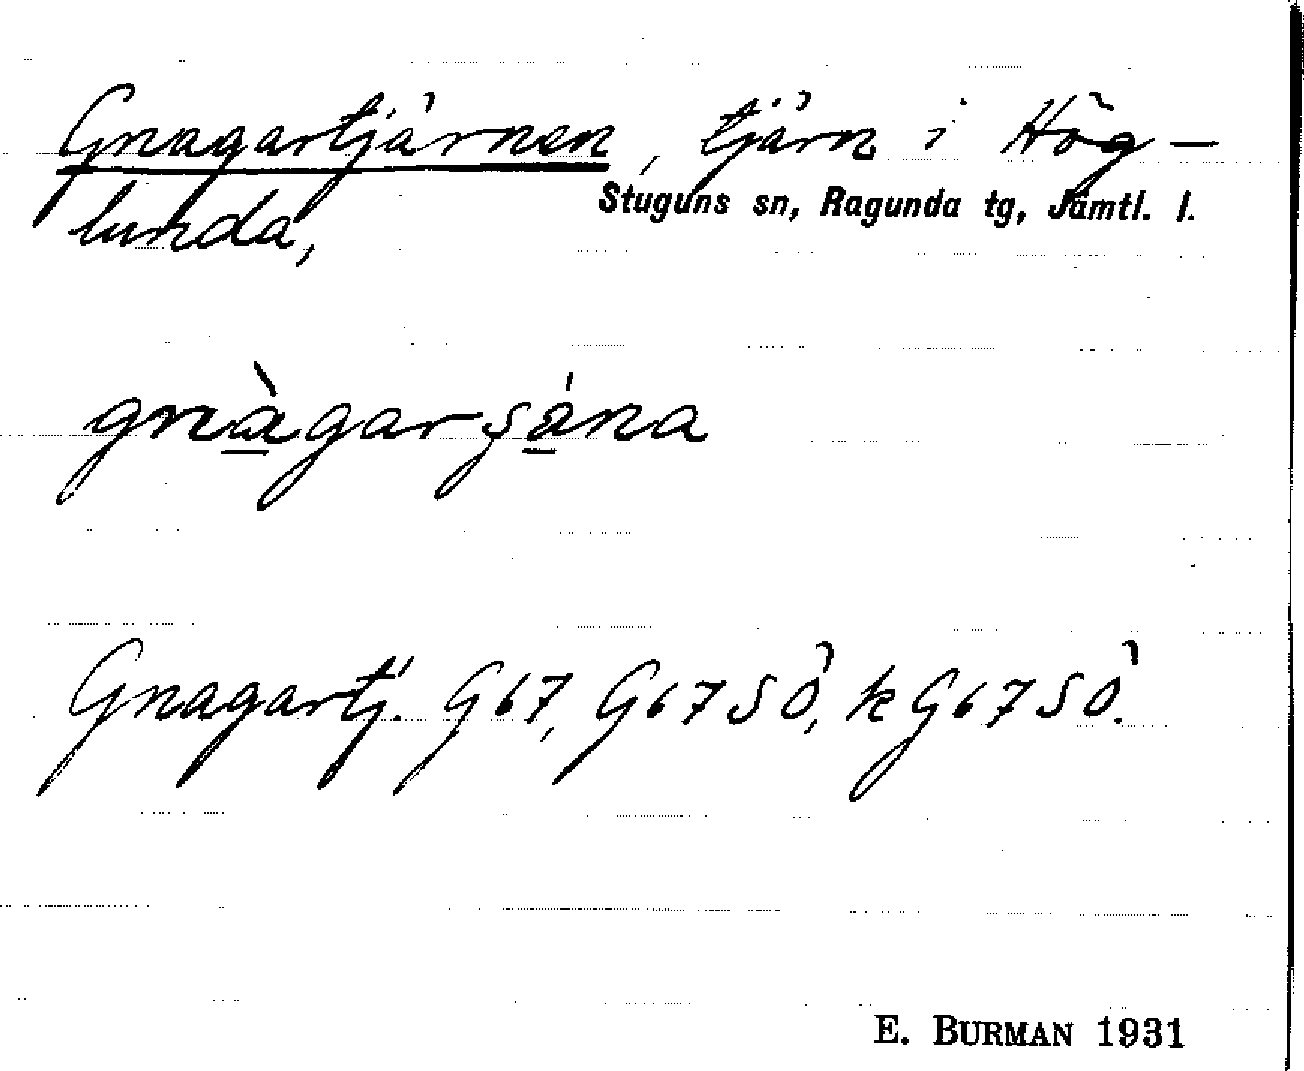 Gnagartjärnen, tjärn i Hög-
Stuguns sn, Ragunda tg, Jämtl. l.
lunda,
gnàgarşána
Gnagartj. G67, G67SÖ, kG67SÖ.
E. BURMAN 1931